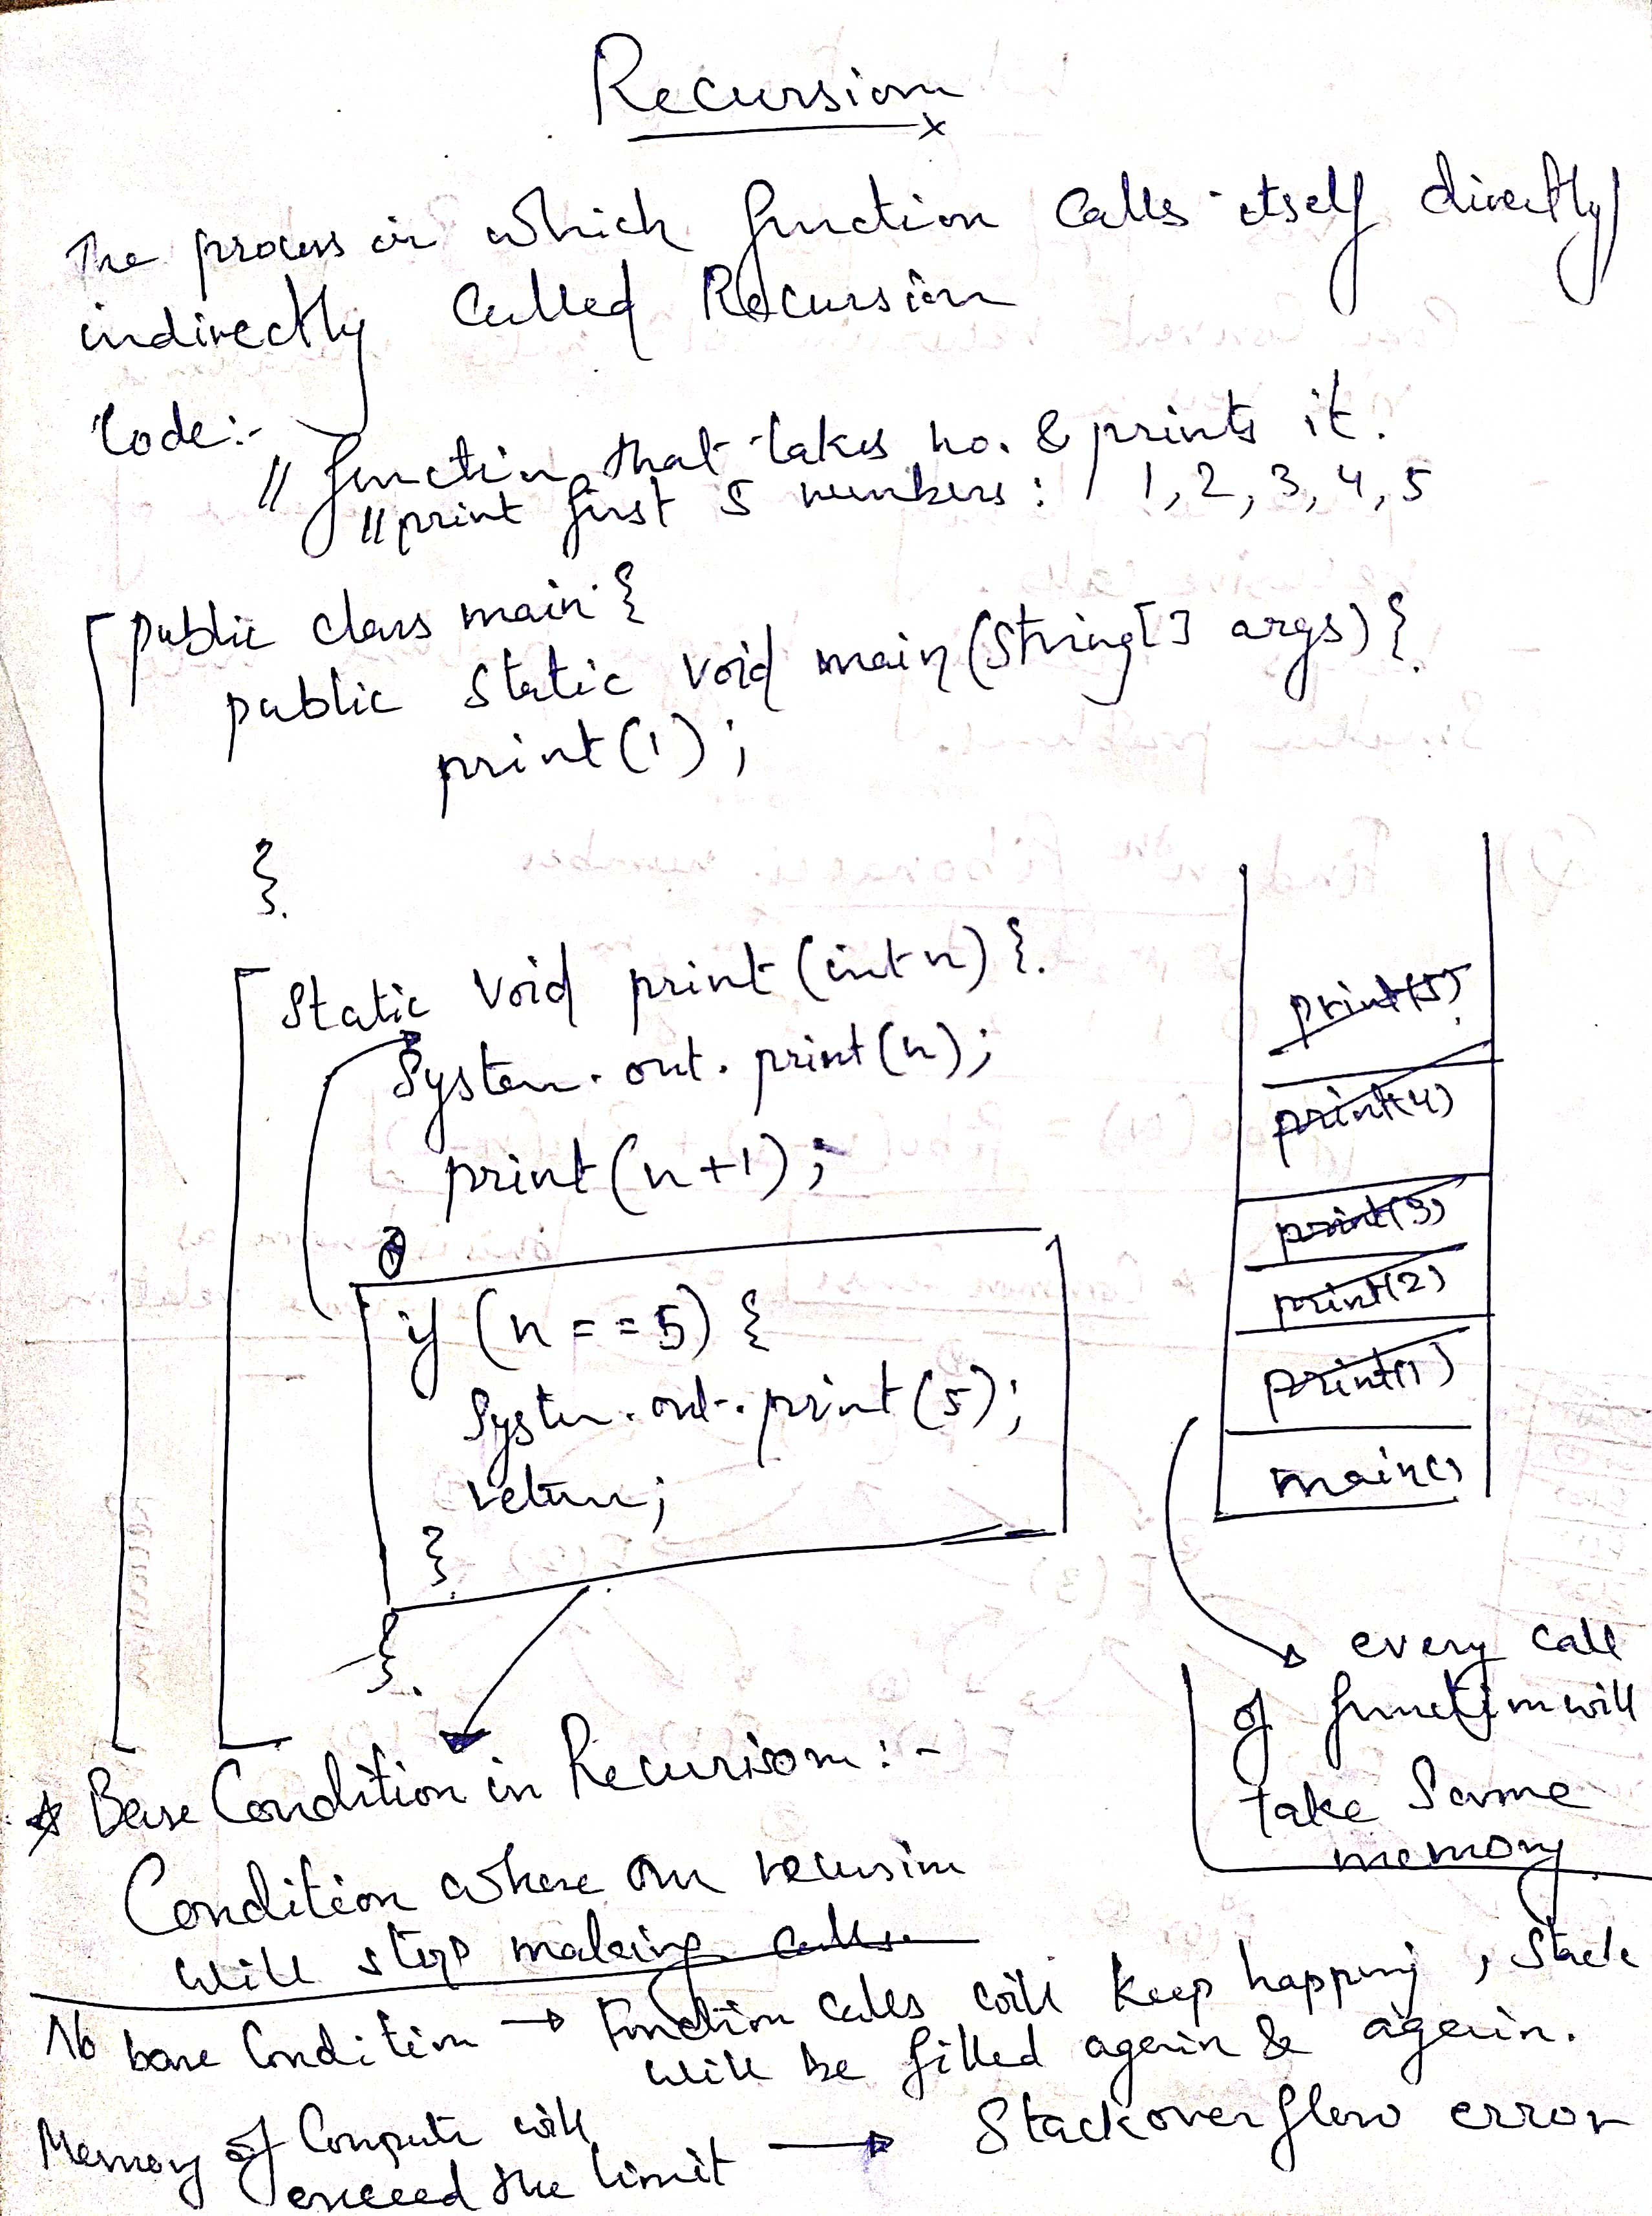 Recursion
The process in which function calls itself directly/
indirectly called Recursion
Code:-
// function that takes no. & prints it.
// print first 5 numbers: 1, 2, 3, 4, 5
public class main {
public static void main (String[] args) {
print(1);
}
Static void print (int n) {
System.out.print(n);
print(n+1);
if (n == 5) {
System.out.print(5);
return;
}
}
print(5)
print(4)
print(3)
print(2)
print(1)
main()
every call
of function will
take Same
memory
* Base Condition in Recurison:-
Condition where our recursion
will stop making calls.
No base Condition → Function calls will keep happening, Stack
will be filled again & again.
Memory of Compute will
exceed the limit → Stackoverflow error